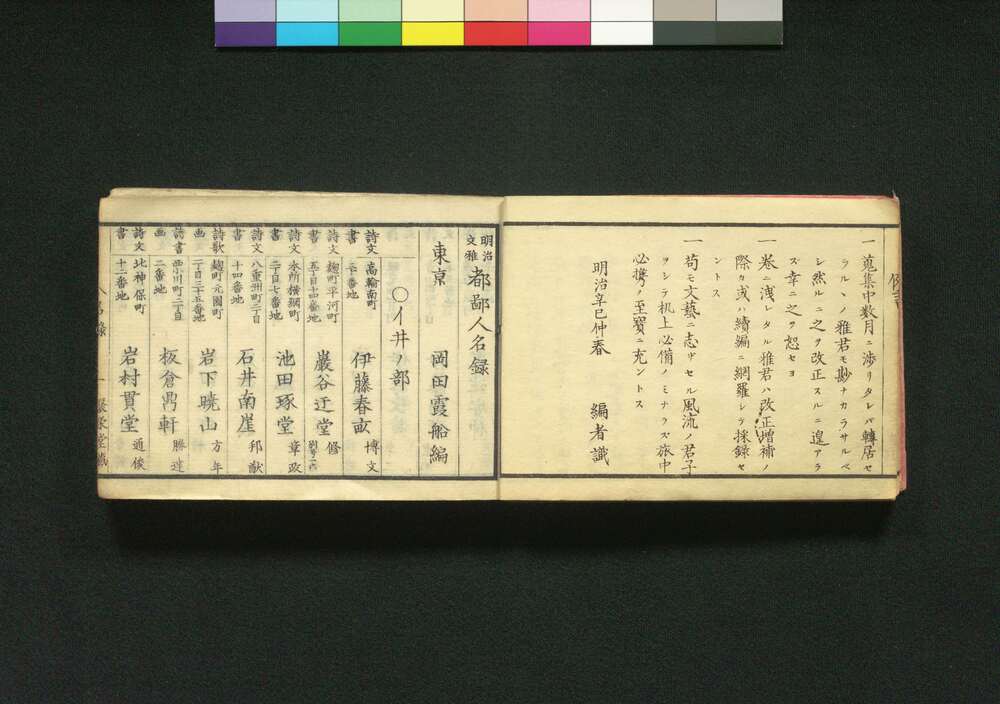 一蒐集中数月ニ渉リタレバ轉居セ
ラル丶ノ雅君モ尠ナカラサルベ
シ然ルニ之ヲ改正スルニ遑アラ
ス幸ニ之ヲ恕セヨ
一巻ニ洩レタル雅君ハ改正増補ノ
際カ或ハ續編ニ網羅シテ採録セ
ントス
一苟モ文藝ニ志ザセル風流ノ君子
ヲシテ机上必備ノミナラズ旅中
必携ノ至寳ニ充ントス
明治辛巳仲春 編者識
明治文雅都鄙人名録
東京 岡田霞船編
〇イ井ノ部
詩文書 高輪南町 伊藤春畝 博文
詩文書 麹町平河町五丁目十四番地 巖谷迂堂 修
詩文書 本所横綱町二丁目七番地 池田琢堂 章政
詩文書 八重洲町二丁目十四番地 石井南崖 邦猷
詩歌画 麹町元園町二丁目三十五番地 岩下暁山 方年
詩書画 西小川町二丁目二番地 板倉鼎軒 勝達
詩文書 北神保町十二番地 岩村貫堂 通俊